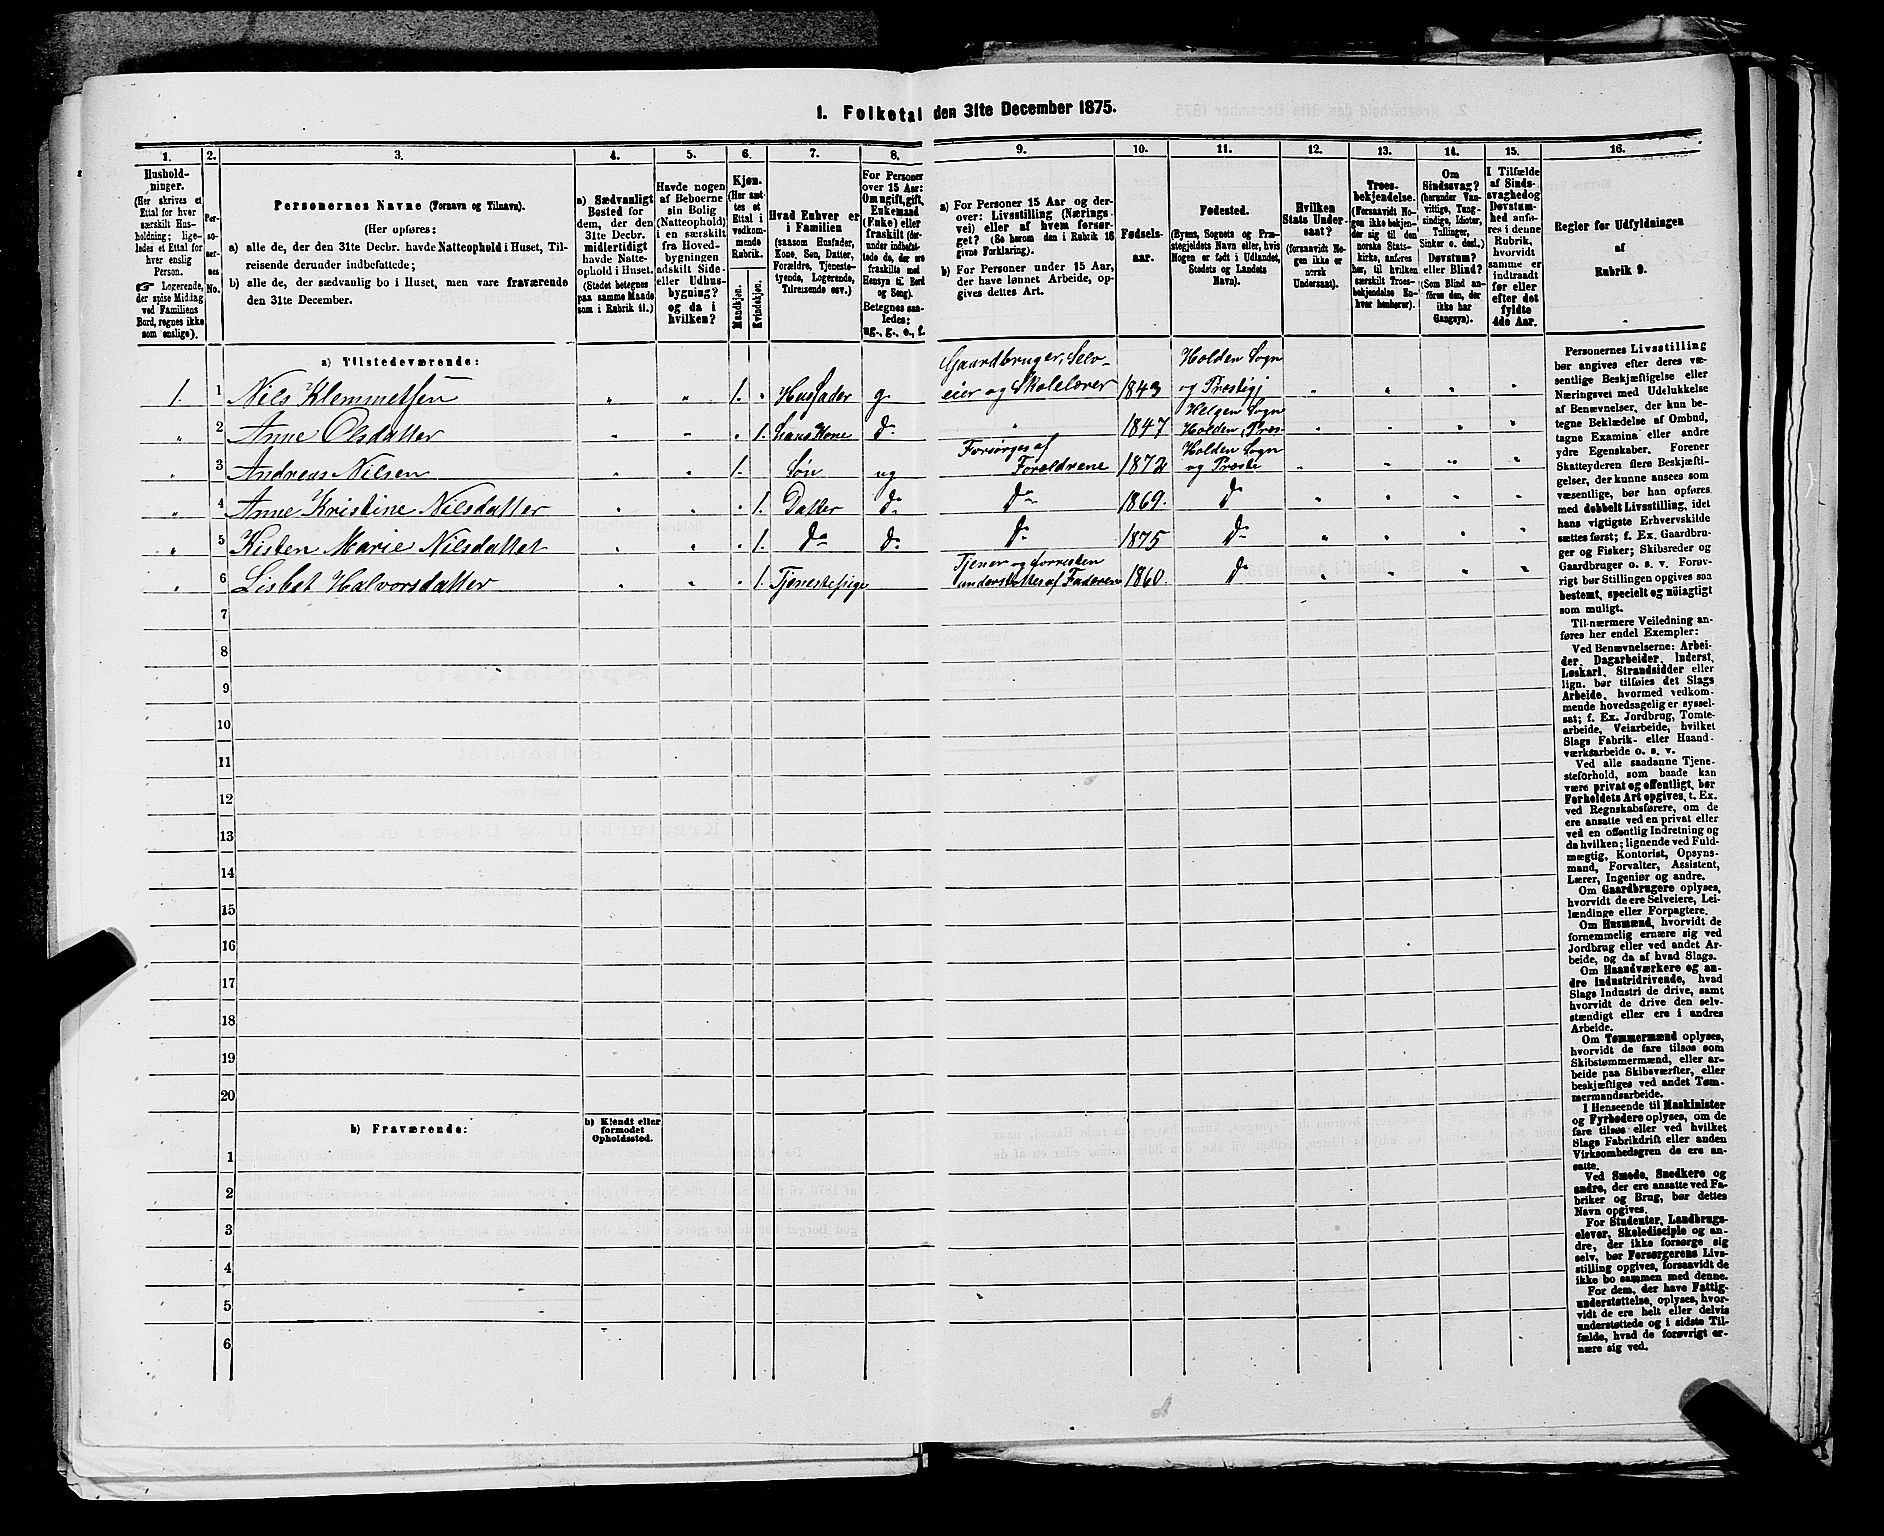 1. Folketal den 31te December 1875.
1. 2. 3. 4. 5. 6. 7. 8. 9. 10. 11. 12. 13. 14. 15. 16.
Hushold-
ninger.
(Her skrives et
Ettal for hver
særskilt Hus-
holdning; lige-
ledes et Ettal for
hver enslig
Person.
☞ Logerende,
der spise Middag
ved Familiens
Bord, regnes ikke
som enslige).
Per-
so-
ner-
nes
No.
Personernes Navne (Fornavn og Tilnavn).
(Her opføres:
a) alle de, der den 31te Decbr. havde Natteophold i Huset, Til-
reisende derunder indbefattede;
b) alle de, der sædvanlig bo i Huset, men vare fraværende
den 31te December.
a) Sædvanligt
Bosted for
dem, der den
31te Decbr.
midlertidigt
havde Natte-
ophold i Huset.
(Stedet betegnes
paa samme Maade
som i Rubrik 11.)
Havde nogen
af Beboerne
sin Bolig
(Natteophold)
i en særskilt
fra Hoved-
bygningen
adskilt Side-
eller Udhus-
bygning?
og da i
hvilken?
Kjøn.
(Her sæt-
tes et
Ettal i
vedkom-
mende
Rubrik.
Mandkjøn.
Kvindekjøn.
Hvad Enhver er
i Familien
(saasom Husfader,
Kone, Søn, Datter,
Forældre, Tjeneste-
tyende, Logerende,
Tilreisende osv.)
For Personer
over 15 Aar:
Om ugift, gift,
Enkemand
(Enke) eller
fraskilt (her-
under indbefat-
tede de, der ere
fraskilte med
Hensyn til Bord
og Seng).
Betegnes saa-
ledes:
ug., g., e., f.
a) For Personer 15 Aar og der-
over: Livsstilling (Nærings-
vei) eller af hvem forsør-
get? (Se herom den i Rubrik 16
givne Forklaring).
b) For Personer under 15 Aar,
der have lønnet Arbeide, op-
gives dettes Art.
Fødsels-
aar.
Fødested.
(Byens, Sognets og Præ-
stegjeldets Navn eller, hvis
Nogen er født i Udlandet,
Stedets og Landets
Navn).
Hvilken
Stats Under-
saat?
(forsaavidt No-
gen ikke er
norsk
Undersaat).
Troes-
bekjendelse.
(Forsaavidt No-
gen ikke bekjen-
der sig til den
norske Stats-
kirke, anføres
her, til hvilken
særskilt Troes-
bekjendelse En-
hver henhører).
Om
Sindssvag?
(herunder Van-
vittige, Tung-
sindige, Idioter,
Tullinger,
Sinker o. desl.)
Døvstum?
eller Blind?
(Som Blind an-
føres den, der
ikke har
Gangsyn).
I Tilfælde
af Sinds-
svaghed og
Døvstum-
hed anfø-
res i denne
Rubrik,
hvorvidt
samme er
indtraadt
før eller
efter det
fyldte
4de Aar.
Regler for Udfyldningen
af
Rubrik 9.
a) Tilstedeværende:
Gaardbruger, Selv- Holden Sogn
1. 1 Nils Klemmetsen " " 1. " Husfader g. eier og Skolelærer 1843 og Præstegj " " " "
Helgen Sogn
" 2 Anne Olsdatter " " " 1. hans Kone d° " 1847 Holden, Præs- " " " "
Forsørges af Holden Sogn
" 3 Andreas Nilsen " " 1. " Søn ug Forældrene 1872 og Præste " " " "
" 4 Anne Kristine Nilsdatter " " " 1. Datter d° d° 1869. d° " " " "
" 5 Kisten Marie Nilsdatter " " " 1. d° d° d° 1875 d° " " " "
Tjener og forresten
" 6 Lisbet Halvorsdatter " " " 1. Tjenestepige understøttes af Faderen 1860. d° " " " "
7
8
9
10
11
12
13
14
15
16
17
18
19
20
b) Fraværende:
b) Kjendt eller
formodet
Opholdssted.
1
2
3
4
5
6
Personernes Livsstilling
bør angives efter deres væ-
sentlige Beskjæftigelse eller
Næringsvei med Udelukkelse
af Benævnelser, der kun be-
tegne Beklædelse af Ombud,
tagne Examina eller andre
ydre Egenskaber. Forener
Skatteyderen flere Beskjæfti-
gelser, der kunne ansees som
væsentlige, bør han opføres
med dobbelt Livsstilling, idet
hans vigtigste Erhvervskilde
sættes først; f. Ex. Gaardbru-
ger og Fisker; Skibsreder og
Gaardbruger o. s. v. Forøv-
rigt bør Stillingen opgives saa
bestemt, specielt og nöiagtigt
som muligt.
Til nærmere Veiledning an-
føres her endel Exempler:
Ved Benævnelserne: Arbei-
der, Dagarbeider, Inderst,
Løskarl, Strandsidder eller
lign. bør tilføies det Slags
Arbeide, hvormed vedkom-
mende hovedsagelig er syssel-
sat; f. Ex. Jordbrug, Tomte-
arbeide, Veiarbeide, hvilket
Slags Fabrik- eller Haand-
værksarbeide o. s. v.
Ved alle saadanne Tjene-
steforhold, som baade kan
være privat og offentligt, bør
Forholdets Art opgives, t. Ex.
ved Regnskabsførere, om de
ere ansatte ved en privat eller
ved en offentlig Indretning og
da hvilken; lignende ved Fuld-
mægtig, Kontorist, Opsyns-
mand, Forvalter, Assistent,
Lærer, Ingeniør og andre.
Om Gaardbrugere oplyses,
hvorvidt de ere Selveiere, Lei-
lændinge eller Forpagtere.
Om Husmænd, hvorvidt de
fornemmelig ernære sig ved
Jordbrug eller ved andet Ar-
beide, og da af hvad Slags.
Om Haandværkere og an-
dre Industridrivende, hvad
Slags Industri de drive, samt
hvorvidt de drive den selv-
stændigt eller ere i andres
Arbeide.
Om Tømmermænd oplyses,
hvorvidt de fare tilsøs som
Skibstømmermænd, eller ar-
beide paa Skibsværfter, eller
beskjæftiges ved andet Tøm-
mermandsarbeide.
I Henseende til Maskinister
og Fyrbødere oplyses, om de
fare tilsøs eller ved hvilket
Slags Fabrikdrift eller anden
Virksomhedsgren de ere an-
satte.
Ved Smede, Snedkere og
andre, der ere ansatte ved Fa-
briker og Brug, bør dettes
Navn opgives.
For Studenter, Landbrugs-
elever, Skoledisciple og an-
dre, der ikke forsørge sig
selv, bør Forsørgerens Livs-
stilling opgives, forsaavidt de
ikke bo sammen med denne.
For dem, der have Fattig-
understøttelse, oplyses, hvor-
vidt de ere helt eller delvis
understøttede og i sidste Til-
fælde, hvad de forøvrigt er-
nære sig ved.